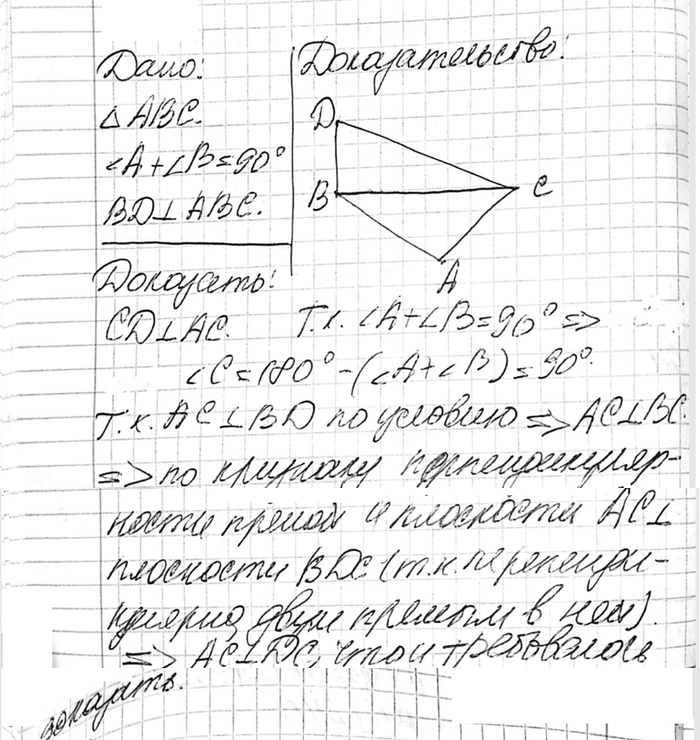 Дано:
△ABC.
∠A+∠B=90°
BD⊥ABC.
Доказать:
CD⊥AC.
Доказательство:
D
B
C
A
Т.к. ∠A+∠B=90° =>
∠C=180°-(∠A+∠B)=90°.
Т.к. AC⊥BD по условию => AC⊥BC.
=> по признаку перпендикуляр-
ности прямой и плоскости AC⊥
плоскости BDC (т.к. перпенди-
кулярна двум прямым в ней).
=> AC⊥DC, что и требовалось
доказать.